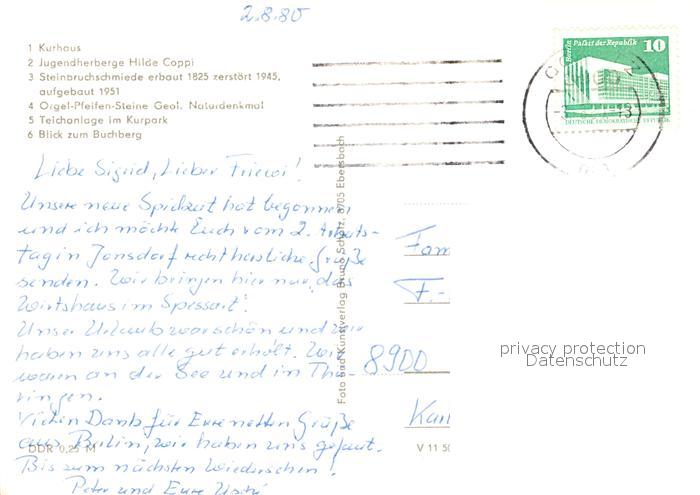 2.8.80
1 Kurhaus
2 Jugendherberge Hilde Coppi
3 Steinbruchschmiede erbaut 1825 zerstört 1945,
aufgebaut 1951
4 Orgel-Pfeifen-Steine Geol. Naturdenkmal
5 Teichanlage im Kurpark
6 Blick zum Buchberg
Liebe Sigrid, Lieber Friedi!
Unsere neue Spielzeit hat begonnen
und ich möchte Euch vom 2. Arbeits-
tag in Jonsdorf recht herzliche Grüße
senden. Wir bringen hier nur "das
Wirtshaus im Spessart".
Unser Urlaub war schön und wir
haben uns alle gut erholt. Wir
waren an der See und in Thü-
ringen.
Vielen Dank für Eure netten Grüße
aus Berlin, wir haben uns gefreut.
Bis zum nächsten Wiedersehen!
Peter und Eure Uschi
DDR 0,25 M
Foto Bild Kunstverlag Bruno Scholz, 8705 Ebersbach
V 11 50
Berlin Palast der Republik
10
DEUTSCHE DEMOKRATISCHE REPUBLIK
Fam
F.-
8900
privacy protection
Datenschutz